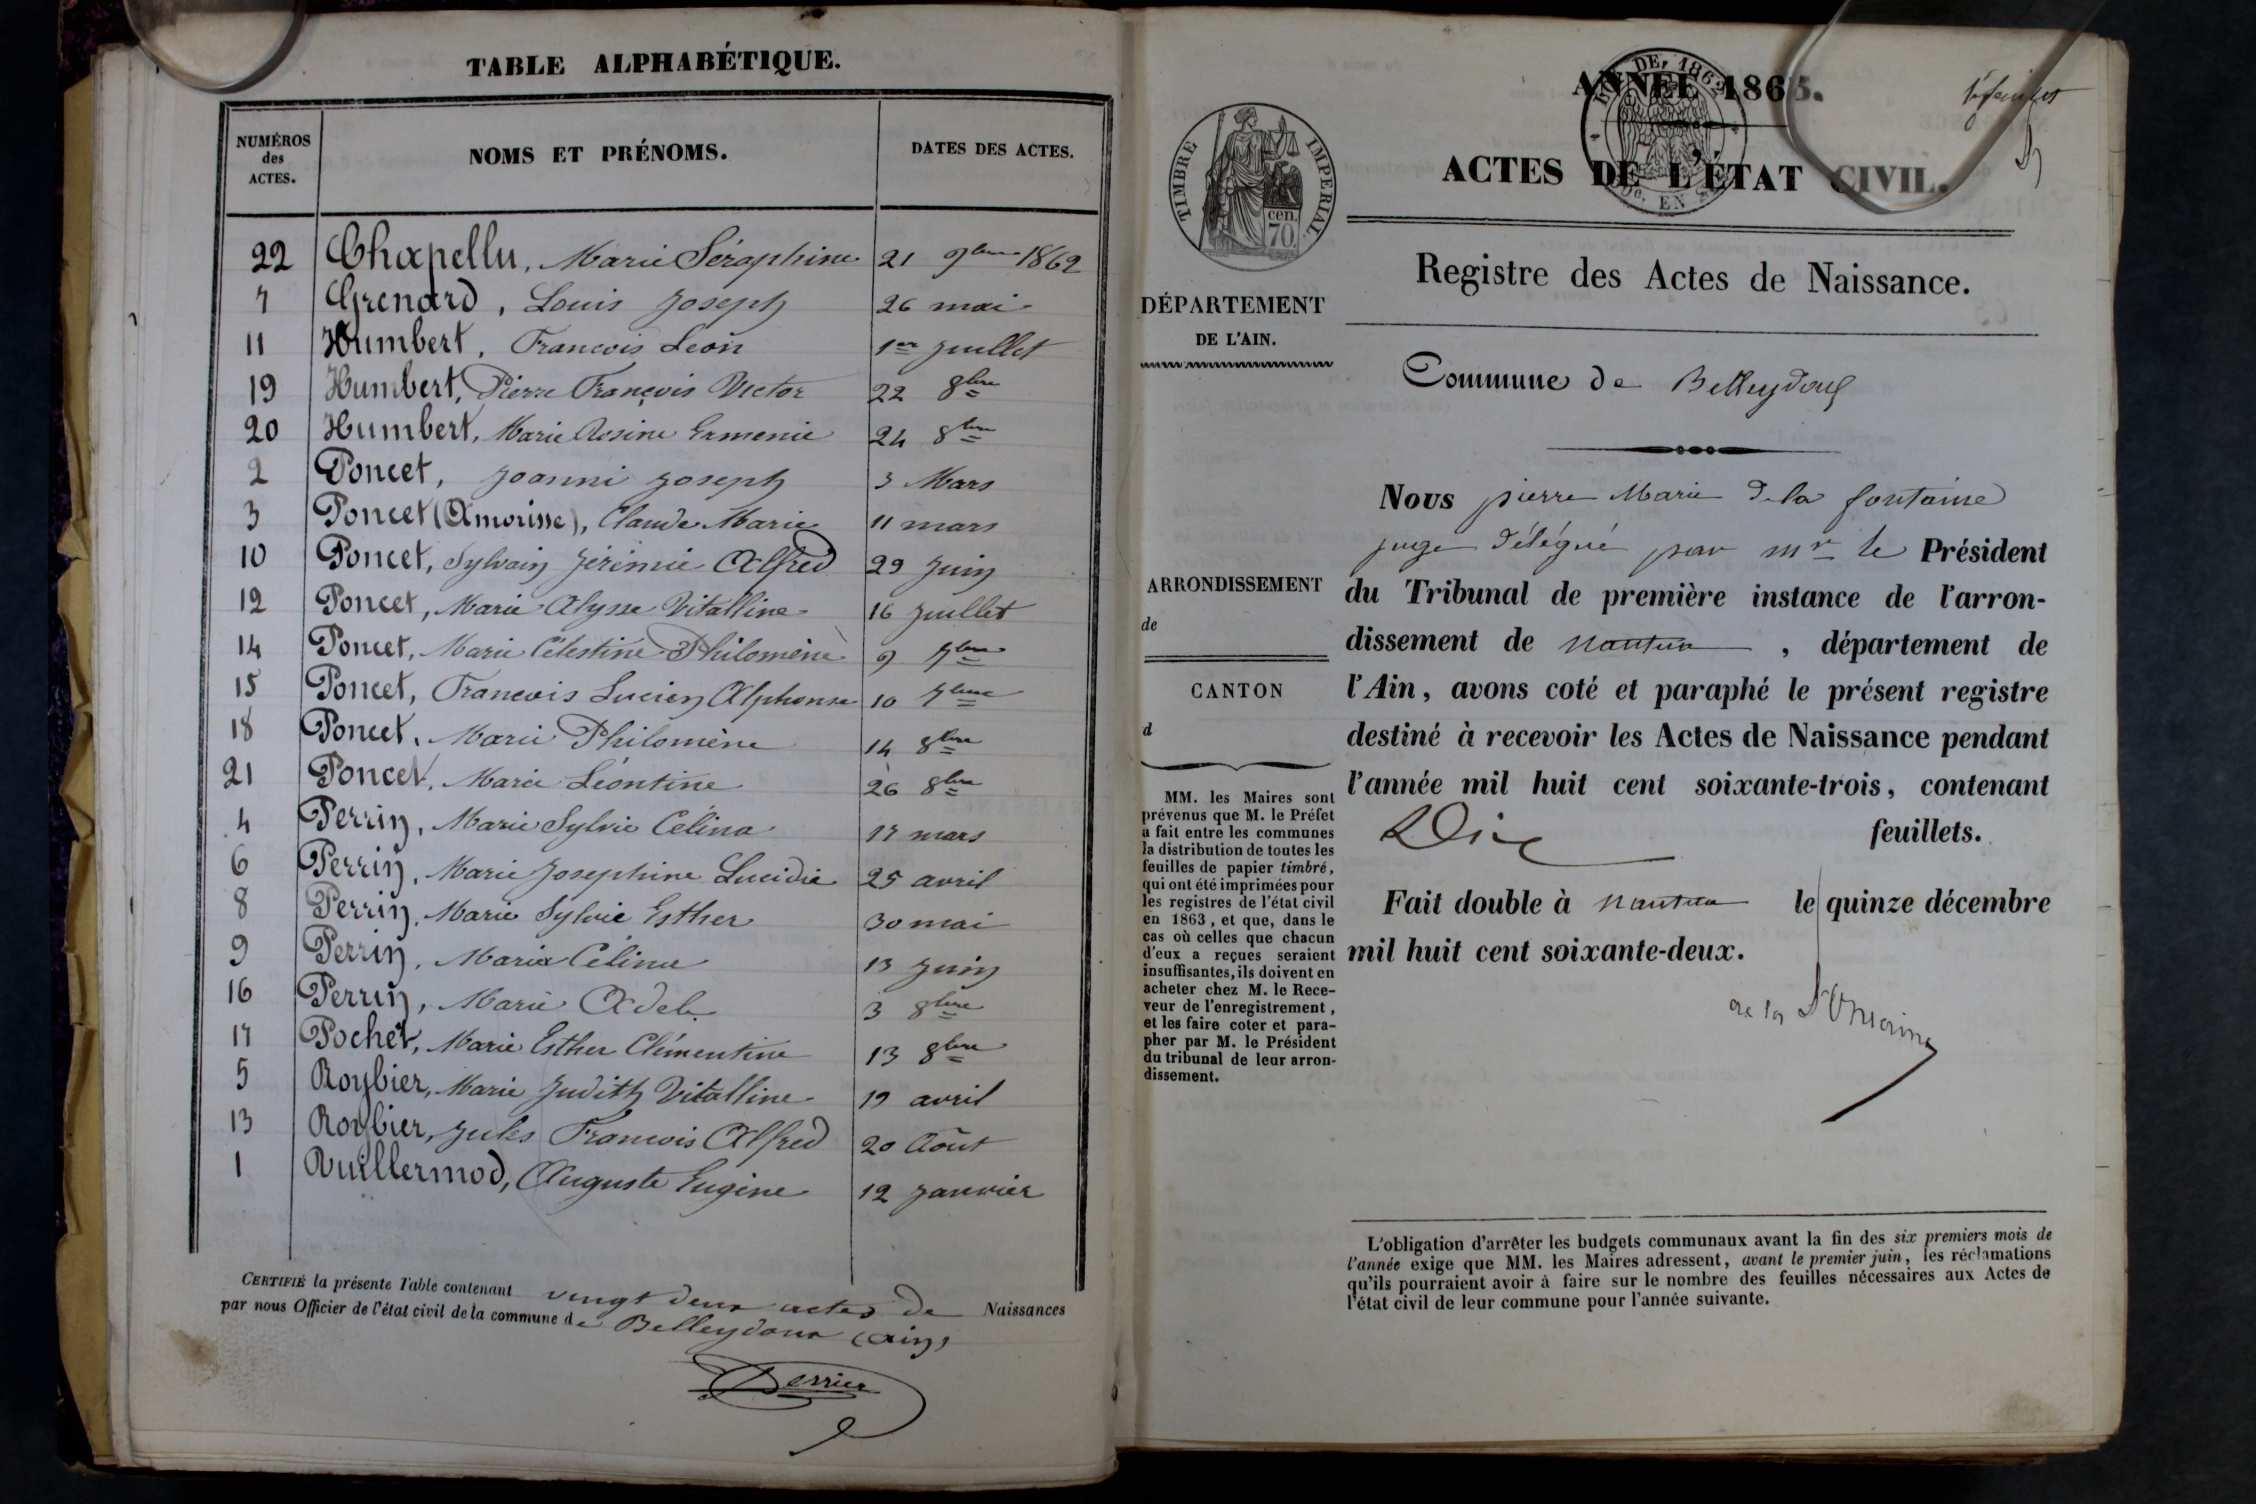 TABLE ALPHABÉTIQUE.
NUMÉROS des ACTES. NOMS ET PRÉNOMS. DATES DES ACTES.
22 Chapellu, Marie Séraphine 21 9bre 1862
7 Grenard, Louis Joseph 26 mai
11 Humbert, Francois Léon 1er Juillet
19 Humbert, Pierre François Victor 22 8bre
20 Humbert, Marie Rosine Ermenie 24 8bre
2 Poncet, Joanni Joseph 3 Mars
3 Poncet (Amorisse), Claude Marie 11 mars
10 Poncet, Sylvain Jérémie Alfred 29 Juin
12 Poncet, Marie Alysse Vitalline 16 Juillet
14 Poncet, Marie Célestine Philomène 9 7bre
15 Poncet, Francois Lucien Alphonse 10 7bre
18 Poncet, Marie Philomène 14 8bre
21 Poncet, Marie Léontine 26 8bre
4 Perrin, Marie Sylvie Célina 17 mars
6 Perrin, Marie Josephine Lucidie 25 avril
8 Perrin, Marie Sylvie Esther 30 mai
9 Perrin, Maria Céline 13 Juin
16 Perrin, Marie Adele 3 8bre
17 Pochet, Marie Esther Clémentine 13 8bre
5 Roybier, Marie Judith Vitalline 19 avril
13 Roybier, Jules Francois Alfred 20 Août
1 Vuillermoz, Auguste Eugène 12 Janvier
CERTIFIÉ la présente Table contenant vingt deux actes de Naissances
par nous Officier de l'état civil de la commune de Belleydoux (Ain)
Perrier
ANNÉE 1863.
ACTES DE L'ÉTAT CIVIL.
TIMBRE IMPÉRIAL.
cen.
70.
DE 1862
EN
Registre des Actes de Naissance.
DÉPARTEMENT
DE L'AIN.
Commune de Belleydoux
Nous pierre Marie De la fontaine
juge délégué par mr le Président
du Tribunal de première instance de l'arron-
dissement de nantua, département de
l'Ain, avons coté et paraphé le présent registre
destiné à recevoir les Actes de Naissance pendant
l'année mil huit cent soixante-trois, contenant
Dix feuillets.
Fait double à nantua le quinze décembre
mil huit cent soixante-deux.
ARRONDISSEMENT
de
CANTON
d
MM. les Maires sont
prévenus que M. le Préfet
a fait entre les communes
la distribution de toutes les
feuilles de papier timbré,
qui ont été imprimées pour
les registres de l'état civil
en 1863, et que, dans le
cas où celles que chacun
d'eux a reçues seraient
insuffisantes, ils doivent en
acheter chez M. le Rece-
veur de l'enregistrement,
et les faire coter et para-
pher par M. le Président
du tribunal de leur arron-
dissement.
L'obligation d'arrêter les budgets communaux avant la fin des six premiers mois de
l'année exige que MM. les Maires adressent, avant le premier juin, les réclamations
qu'ils pourraient avoir à faire sur le nombre des feuilles nécessaires aux Actes de
l'état civil de leur commune pour l'année suivante.